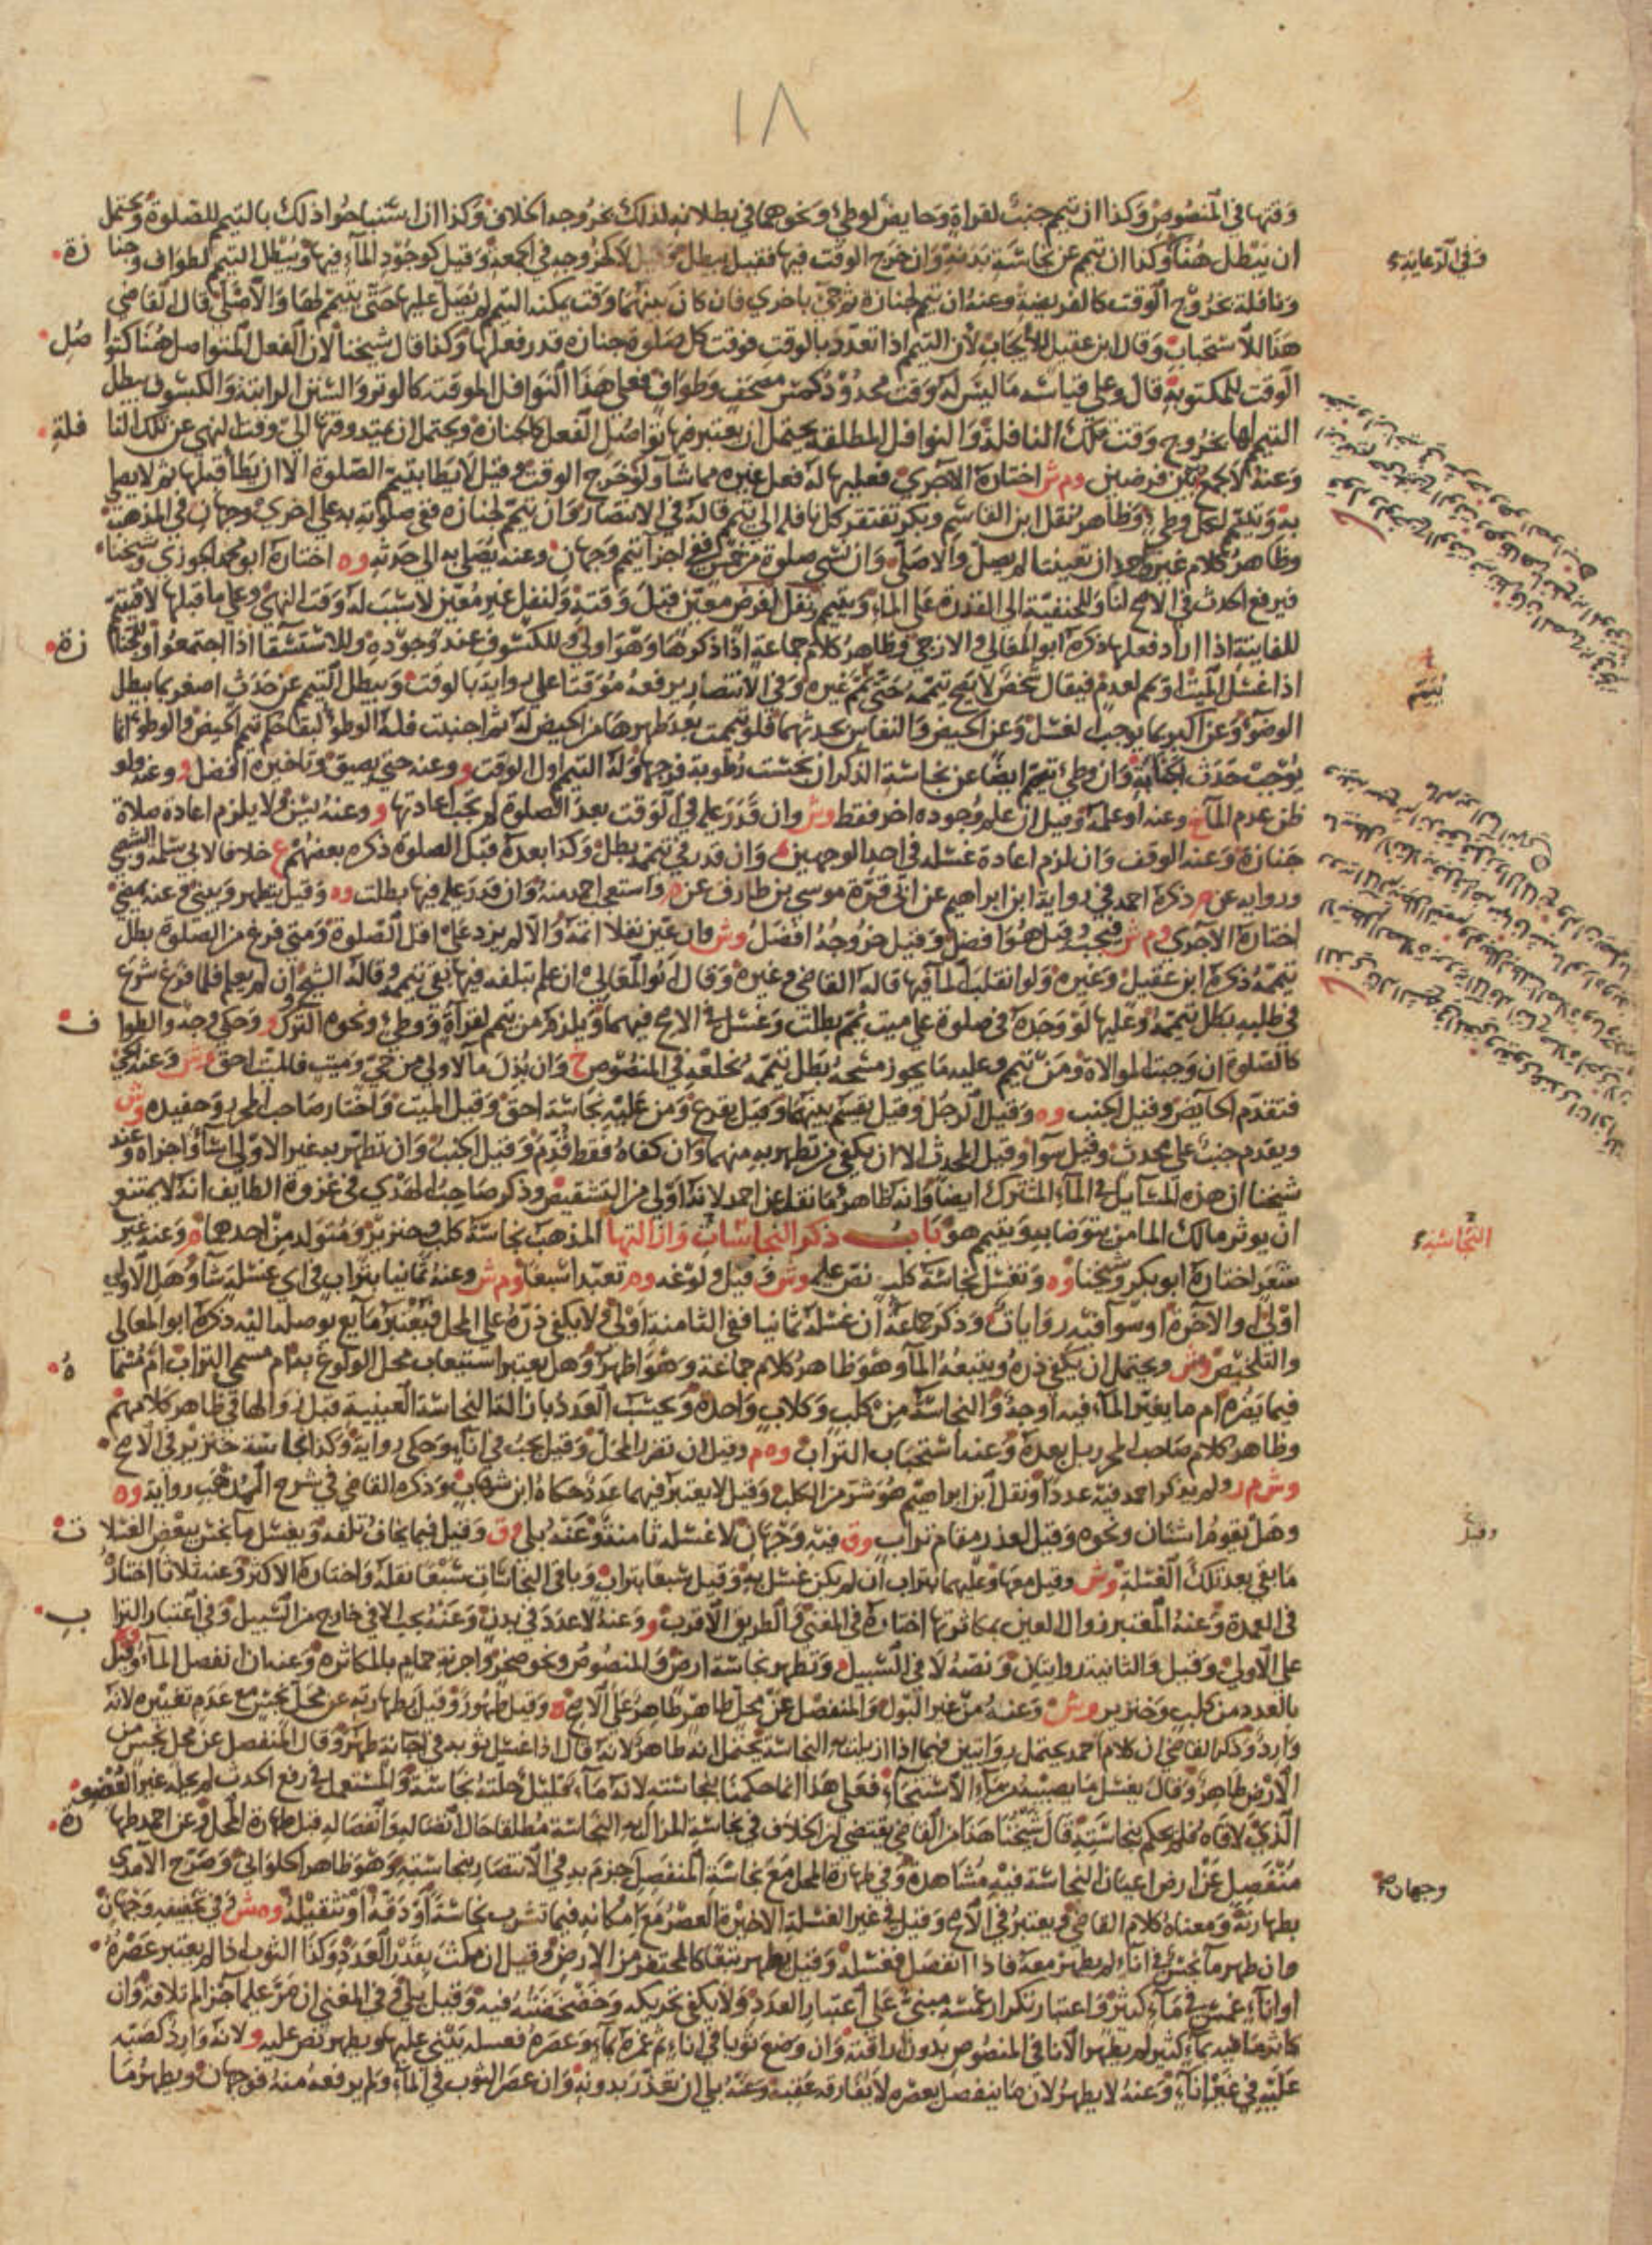 ١٨
وقتها في المنصوص وكذا ان تيمم جنب لقراءة وحايض لوطئ ونحوهما في بطلانه لذلك بخروجه الخلاف وكذا ان استباحوا ذلك بالتيمم للصلوة ويحتمل
ان يبطل هنا وكذا ان تيمم عن نجاسة بدنه وان خرج الوقت فيها فقيل يبطل وقيل لا كخروجه في الجمعة وقيل كوجود الماء فيها ويبطل التيمم لطواف وجنا زة
وفي الرعاية
ونافلة بخروج الوقت كالفريضة وعنه ان تيمم لجنازة ثم جئ باخرى فان كان بينهما وقت يمكنه التيمم لم يصل عليها حتى يتيمم لها والاصلي قال القاضي
هذا للاستحباب وقال ابن عقيل للايجاب لان التيمم اذا تعدد بالوقت فوقت كل صلوة جنازة قدر فعلها وكذا قال شيخنا لان الفعل المتواصل هنا كتوا صل
الوقت للمكتوبة قال وعلى قياسه ما ليس له وقت محدود كمس مصحف وطواف فعلى هذا النوافل الموقتة كالوتر والسنن الراتبة والكسوف يبطل
التيمم لها بخروج وقت تلك النافلة والنوافل المطلقة يحتمل ان يعتبر فيها تواصل الفعل كالجنازة ويحتمل ان يمتد وقتها الى وقت النهي عن تلك النا فلة
وعنه لا يجمع بين فرضين وم ش اختاره الآجري فعليها له فعل غيره مما شاء ولو خرج الوقت وقيل لا يطا بتيمم الصلوة الا ان يطأ قبلها ثم لا يصلي
به ويتيمم لكل وطئ وظاهر نقل ابن القاسم وبكر تفتقر كل نافلة الى تيمم قاله في الانتصار وان تيمم لجنازة ففي صلوته به على اخرى وجهان في المذهب
وظاهر كلام غير واحد ان تعينتا لم يصل والا صلى وان نسي صلوة من خمس اجزأ تيمم وجهان وعنه يصلي به الى حدثه وه اختاره ابو محمد الجوزي وشيخنا
فيرفع الحدث في الاصح لنا وللحنفية الى القدرة على الماء ويتيمم لفرض معين قبل وقته ولنفل غير معين لا سبب له وقت النهي وعلى ما قبلها لا فيتيمم
للفايتة اذا اراد فعلها ذكره ابو المعالي والازجي وظاهر كلام جماعة اذا ذكرها وهو اولى وللكسوف عند وجوده وللاستسقا اذا اجتمعوا وللجنا زة
اذا غسل الميت او يمم لعدم فيقال شخص لا يصح تيممه حتى ييمم غيره وفي الانتصار يرفعه موقتا على رواية بالوقت ويبطل التيمم عن حدث اصغر بما يبطل
ييمم
الوضوء وعن اكبر بما يوجب الغسل وعن الحيض والنفاس بحدثهما فلو تيممت بعد طهرها من الحيض له ثم اجنبت فله الوطؤ لبقا حكم تيمم الحيض والوطؤ انما
يوجب حدث الجنابة وان وطئ تيمم ايضا عن نجاسة الذكر ان نجست رطوبة فرجها وله التيمم اول الوقت و وعنه حتى يضيق وتاخيره افضل و وعنه ولو
ظن عدم الماء خ وعنه او علمه وقيل ان علم وجوده اخر فقط وش وان قدر عليه في الوقت بعد الصلوة لم تجب اعادتها و وعنه يسن ولا يلزم اعادة صلاة
جنازة وعنه الوقف وان لزم اعادة غسله في احد الوجهين وان قدر في تيممه بطل وكذا بعده قبل الصلوة ذكره بعضهم ع خلافا لابي سلمة والشعبي
ورواية عن م ذكره احمد في رواية ابن ابراهيم عن ابي قرة موسى بن طارق عن م واستعمى احمد منه وان قدر عليه فيها بطلت وه وقيل يتطهر ويبني وعنه يمضي
اختاره الآجري وم ش فيجب وقيل هو افضل وقيل خروجه افضل وش وان عين نفلا اتمه والا لم يزد على اقل الصلوة ومتى فرغ من الصلوة بطل
تيممه ذكره ابن عقيل وغيره ولو انقلب الماء فيها قاله القاضي وغيره وقال ابو المعالي ان علم بتلفه فيها بقي تيممه وقاله الشيخ ان لم يعلم فلما فرغ شرع
في طلبه بطل تيممه وعليها لو وجده في صلوة على ميت يمم بطلت وغسل في الاصح فيهما ويلزم من تيمم لقراءة ووطئ ونحوه الترك و وحكي وجه والطوا ف
كالصلوة ان وجبت الموالاة ومن تيمم وعليه ما يجوز مسحه بطل تيممه بخلعه في المنصوص خ وان بذل ماء لاولى من حي وميت فالميت احق وش وعنه الحي
فتقدم الحايض وقيل الجنب وه وقيل الرجل وقيل يقسم بينهما وقيل يقرع ومن عليه نجاسة احق وقيل الميت واختار صاحب المحرر وحفيده وش
ويقدم جنب على محدث وقيل سواء وقيل المحدث الا ان يكفي من تطهر به منهما وان كفاه فقط قدم وقيل الجنب وان تطهر به غير الاولى اساء واجزاه وعند
شيخنا ان هذه المسايل في الماء المشترك ايضا وانه ظاهر ما نقل عن احمد لانه اولى من التشقيص وذكر صاحب الهدي في غزوة الطايف انه لا يمتنع
ان يوثر مالك الما من يتوضا به ويتيمم هو باب ذكر النجاسات وازالتها المذهب نجاسة كلب وخنزير ومتولد من احدهما ه وعنه غير
النجاسة
شعر اختاره ابو بكر وشيخنا وه وتغسل نجاسة كلب نص عليه وش وقيل ولوغه وه تعبدا سبعا وم ش وعنه ثمانيا بتراب في اي غسلة شاء وهل الاولى
اولى او الآخرة او سواء فيه روايات وذكر جماعة ان غسله ثمانيا ففي الثامنة اولى ولا يكفي ذره على المحل فيعتبر مايع يوصله اليه ذكره ابو المعالي
والتلخيص وش ويحتمل ان يكفي ذره ويتبعه الماء وهو ظاهر كلام جماعة وهو اظهر وهل يعتبر استيعاب محل الولوغ به ام مسمى التراب ام مسما ه
فيما يضره ام ما يغير الماء فيه اوجه والنجاسة من كلب وكلاب واحدة ويحسب العدد بازالة النجاسة العينية قبل زوالها في ظاهر كلامهم
وظاهر كلام صاحب المحرر بل بعده وعنه استحباب التراب وه م وقيل ان تضرر المحل وقيل يجب في اناء وحكي رواية وكذا نجاسة خنزير في الاصح
وش م ر ولم يذكر احمد فيه عددا ونقل ابن ابراهيم هو شر من الكلب وقيل لا يعتبر فيهما عدد حكاه ابن شهاب وذكره القاضي في شرح المذهب رواية وه
وهل يقوم اشنان ونحوه وقيل لعذر مقام تراب وق فيه وجهان لا غسلة ثامنة وعنه بلى وق وقيل فيما يخاف تلفه ويغسل ما نجس ببعض الغسلا ت
وقيل
ما بقي بعد تلك الغسلة وش وقيل معها وعليهما بتراب ان لم يكن غسل به وقيل سبعا بتراب وباقي النجاسات سبعا نقله واختاره الاكثر وعنه ثلاثا اختاره
في العمدة وعنه المعتبر زوال العين بمكاثرتها اختاره في المغني والطريق الاقرب و وعنه لا عدد في بدن وعنه يجب الا في خارج من السبيل وفي اعتبار الترا ب
على الاولى وقيل والثانية روايتان ونصه لا في السبيل وتطهر نجاسة ارض والمنصوص ونحو صخر واجرنة حمام بالمكاثرة وعنه ان انفصل الماء وقيل
بالعدد من كلب وخنزير وش وعنه من غير البول والمنفصل عن محل طاهر طاهر على الاصح ه وقيل طهور وقيل بطهارته عن محل نجس مع عدم تغيره لانه
وارد وذكر القاضي ان كلام احمد يحتمل روايتين فيما اذا ازيلت به النجاسة يحتمل انه طاهر لانه قال اذا غسل ثوبه في اجانة طهر وقال المنفصل عن محل نجس من
الارض طاهر وقال يغسل ما يصيبه من ماء الاستنجاء فعلى هذا انما حكمنا بنجاسته لانه ماء قليل حلته نجاسة والمستعمل في رفع الحدث لم يحله غير العضو
الذي لاقاه فلم يحكم بنجاسته قال شيخنا هذا من القاضي يقتضي ان الخلاف في نجاسة المزال به النجاسة مطلقا حال اتصاله وانفصاله قبل طهارة المحل وعن احمد طها رة
منفصل عن ارض اعيان النجاسة فيه مشاهدة وفي طهارة المحل مع نجاسة المنفصل جزم به في الانتصار بنجاسته وهو ظاهر الحلواني وصرح الآمدي
وجهان
بطهارته ومعناه كلام القاضي ويعتبر في الاصح وقيل في غير الغسلة الاخيرة العصر مع امكانه فيما تشرب نجاسة او دقه او تثقيله وه ش وفي تجفيفه وجهان
وان طهر ماء نجس في اناء لم يطهر معه فاذا انفصل فغسلة وقيل يطهر تبعا كالمحتفر من الارض وقيل ان مكث بقدر العدد وكذا الثوب اذا لم يعتبر عصره
او اناء غمس في ماء كثير واعتبار تكرار غمسه مبني على اعتبار العدد ولا يكفي تحريكه وخضخضته فيه وقيل بلى وفي المغني ان مر عليه اجزاء ثلاثة وان
كاثر ما فيه بماء كثير لم يطهر الانا في المنصوص بدون اراقته وان وضع ثوبا في اناء ثم غمره بماء وعصره فغسلة يبني عليها ويطهر نص عليه و لانه وارد كصبه
عليه في غير اناء وعنه لا يطهر لان ما ينفصل بعصره لا يفارقه عقبه وعنه بلى ان تعذر بدونه وان عصر الثوب في الماء ولم يرفعه منه فوجهان ويطهر ما